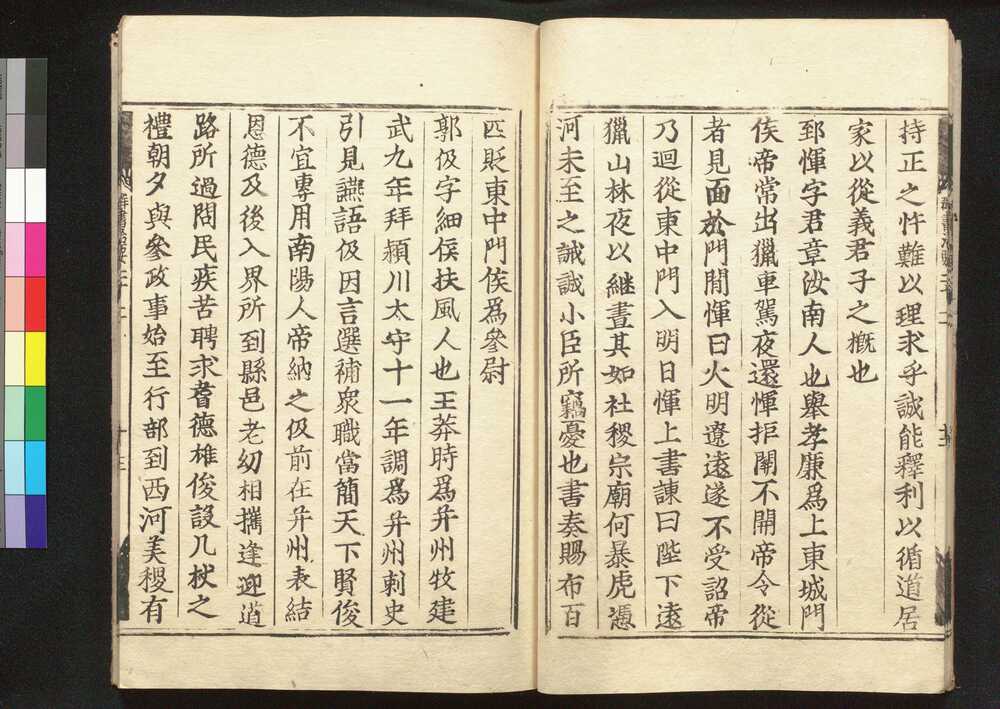 持正之忤難以理求乎誠能釋利以循道居
家以從義君子之概也
郅惲字君章汝南人也舉孝廉爲上東城門
侯帝常出獵車駕夜還惲拒關不開帝令從
者見面於門閒惲曰火明遼遠遂不受詔帝
乃迴從東中門入明日惲上書諫曰陛下遠
獵山林夜以繼晝其如社稷宗廟何暴虎憑
河未至之誡誠小臣所竊憂也書奏賜布百
匹貶東中門侯爲參尉
郭伋字細侯扶風人也王莽時爲幷州牧建
武九年拜潁川太守十一年調爲幷州刺史
引見讌語伋因言選補衆職當簡天下賢俊
不宜專用南陽人帝納之伋前在幷州表結
恩德及後入界所到縣邑老幼相攜逢迎道
路所過問民疾苦聘求耆德雄俊設几杖之
禮朝夕與參政事始至行部到西河美稷有